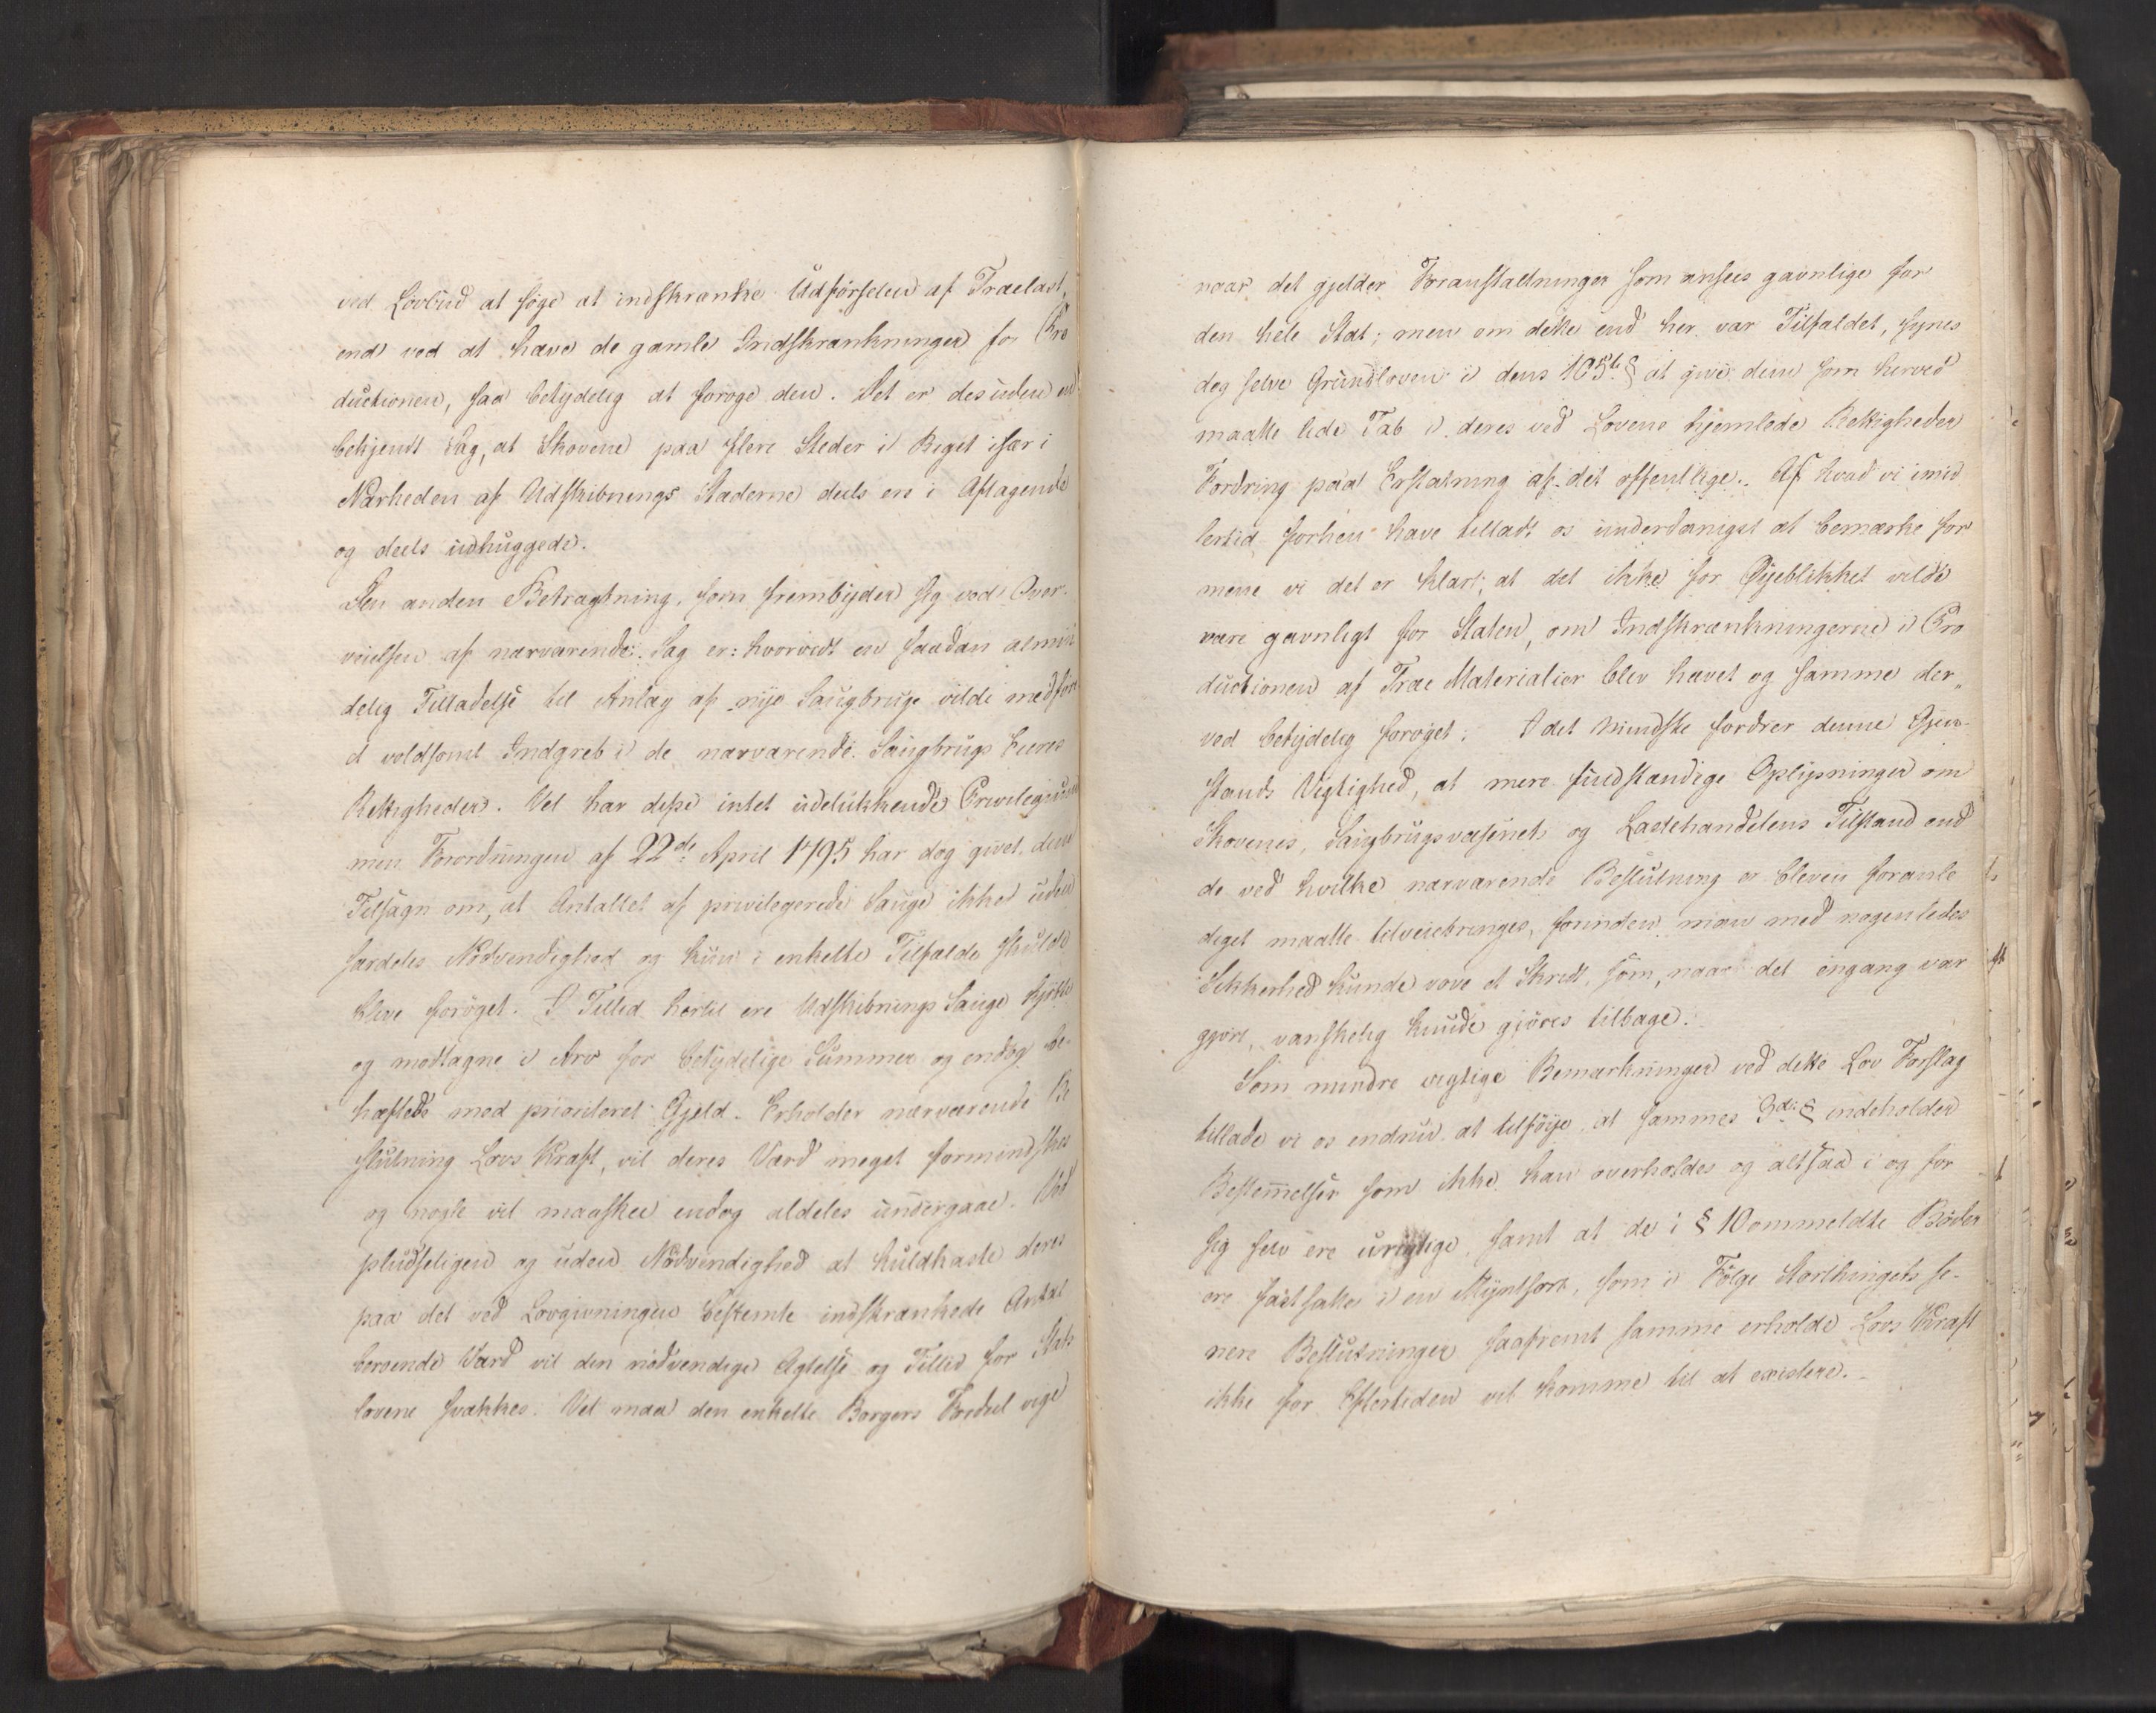 ved Lovbud at søge at indskrænke Udførselen af Trælast,
end ved at hæve de gamle Indskrænkninger for Pro
ductionen, saa betydelig at forøge den. Det er desuden en
bekjendt Sag, at Skovene paa flere Steder i Riget især i
Nærheden af Udskibnings Stæderne deels ere i Aftagende
og deels udhuggede.
Den anden Betragtning, som frembyder sig ved Over-
veielsen af nærværende Sag er: hvorvidt en saadan almin
delig Tilladelse til Anlæg af nye Saugbruge vilde medføre
et voldsomt Indgreb i de nærværende Saugbrugs Eieres
Rettigheder. Vel har disse intet udelukkende Privilegium
men Forordningen af 22de April 1795 har dog givet dem
Tilsagn om, at Antallet af privilegerede Sauge ikke uden
særdeles Nødvendighed og kun i enkelte Tilfælde skulde
blive forøget. I Tillid hertil ere Udskibnings Sauge kjøbte
og modtagne i Arv for betydelige Summer og endog be-
hæftede med prioriteret Gjeld. Erholder nærværende Be
slutning Lovs Kraft, vil deres Værd meget formindskes
og nogle vil maaskee endog aldeles undergaae. Ved
pludseligen og uden Nødvendighed at kuldkaste deres
paa det ved Lovgivningen bestemte indskrænkede Antal
beroende Værd vil den nødvendige Agtelse og Tillid for Stats
lovene svækkes. Vel maa den enkelte Borgers Fordeel vige
naar det gjelder Foranstaltninger som ansees gavnlige for
den hele Stat; men om dette end her var Tilfældet, synes
dog selve Grundloven i dens 105te § at give dem som herved
maatte lide Tab i deres ved Lovene hjemlede Rettigheder
Fordring paa Erstatning af det offentlige. Af hvad vi imid
lertid forhen have tilladt os underdanigst at bemærke for
mene vi det er klart, at det ikke for Øyeblikket vilde
være gavnligt for Staten, om Indskrænkningerne i Pro
ductionen af Træ Materialier blev hævet og samme der„
ved betydelig forøget. I det mindste fordrer denne Gjen-
stands Vigtighed, at mere fuldstændige Oplysninger om
Skovenes, Saugbrugsvæsenets og Lastehandelens Tilstand end
de ved hvilke nærværende Beslutning er bleven foranle
diget maatte tilveiebringes, forinden man med nogenledes
Sikkerhed kunde vove et Skridt, som, naar det engang var
gjort, vanskelig kunde gjøres tilbage.
Som mindre vigtige Bemærkninger ved dette Lov Forslag
tillade vi os endnu at tilføye, at sammes 3die § indeholder
Bestemmelser som ikke kan overholdes og altsaa i og for
sig selv ere urigtige, samt at de i § 10 ommeldte Bøder
ere fastsatte i en Myntsort, som i Følge Storthingets se-
nere Beslutninger saafremt samme erholde Lovs Kraft
ikke for Eftertiden vil komme til at existere.